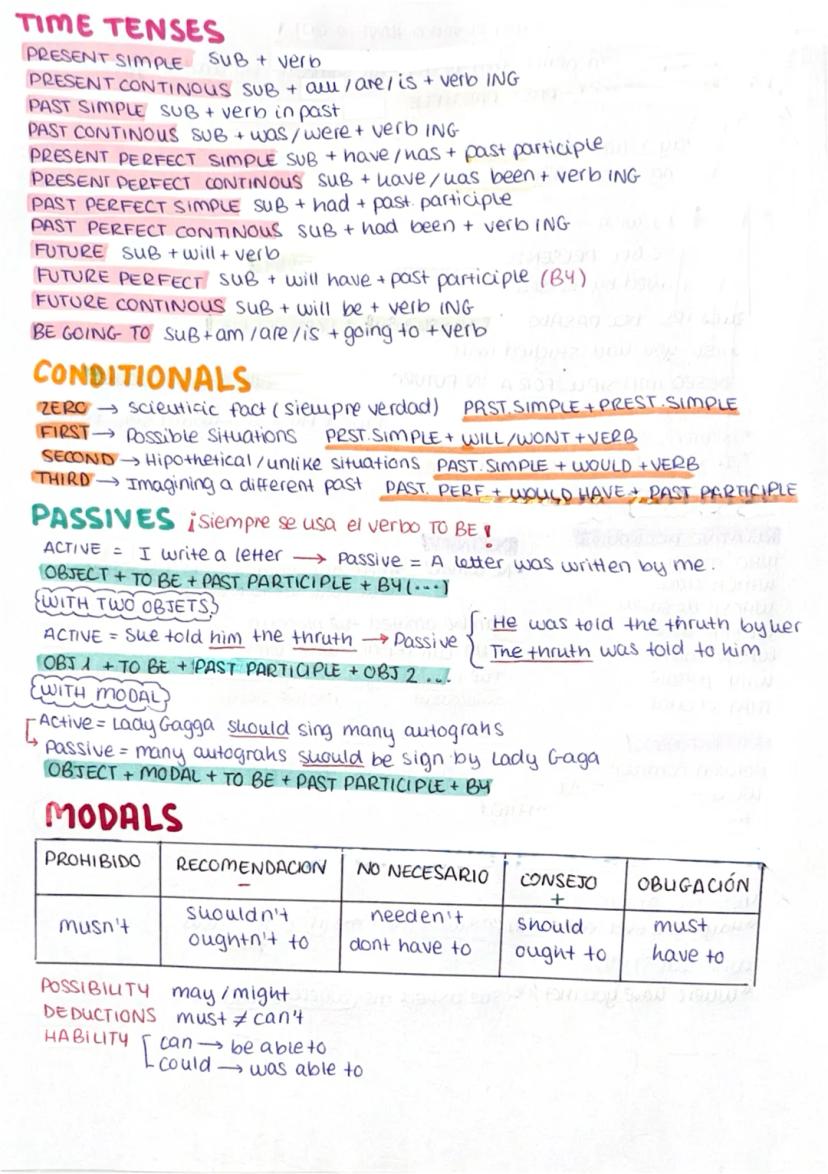 TIME TENSES
PRESENT SIMPLE SUB + verb
PRESENT CONTINOUS SUB + am / are / is + verb ING
PAST SIMPLE SUB + verb in past
PAST CONTINOUS SUB + was / were + verb ING
PRESENT PERFECT SIMPLE SUB + have / has + past participle
PRESENT PERFECT CONTINOUS SUB + have / has been + verb ING
PAST PERFECT SIMPLE SUB + had + past participle
PAST PERFECT CONTINOUS SUB + had been + verb ING
FUTURE SUB + will + verb
FUTURE PERFECT SUB + will have + past participle (BY)
FUTURE CONTINOUS SUB + will be + verb ING
BE GOING TO SUB + am / are / is + going to + verb
CONDITIONALS
ZERO → scientific fact (siempre verdad) PRST. SIMPLE + PREST. SIMPLE
FIRST → Possible situations PRST. SIMPLE + WILL / WONT + VERB
SECOND → Hipothetical / unlike situations PAST. SIMPLE + WOULD + VERB
THIRD → Imagining a different past PAST. PERF + WOULD HAVE + PAST PARTICIPLE
PASSIVES ¡Siempre se usa el verbo TO BE!
ACTIVE = I write a letter → Passive = A letter was written by me.
OBJECT + TO BE + PAST PARTICIPLE + BY (...)
WITH TWO OBJETS
ACTIVE = She told him the thruth → Passive { He was told the thruth by her
The thruth was told to him
OBJ 1 + TO BE + PAST PARTICIPLE + OBJ 2 ...
WITH MODAL
Active = Lady Gagga should sing many autograhs
Passive = many autograhs should be sign by Lady Gaga
OBJECT + MODAL + TO BE + PAST PARTICIPLE + BY
MODALS
PROHIBIDO RECOMENDACION - NO NECESARIO CONSEJO + OBLIGACIÓN
musn't shouldn't needen't should must
oughtn't to dont have to ought to have to
POSSIBILITY may / might
DEDUCTIONS must ≠ can't
HABILITY can → be able to
could → was able to